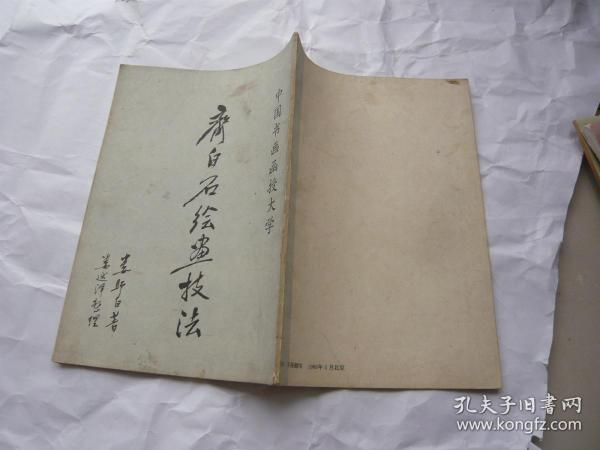 中国书画函授大学
齐白石绘画技法
娄师白著
娄述泽整理
1985年1月北京
孔夫子旧书网
www.kongfz.com